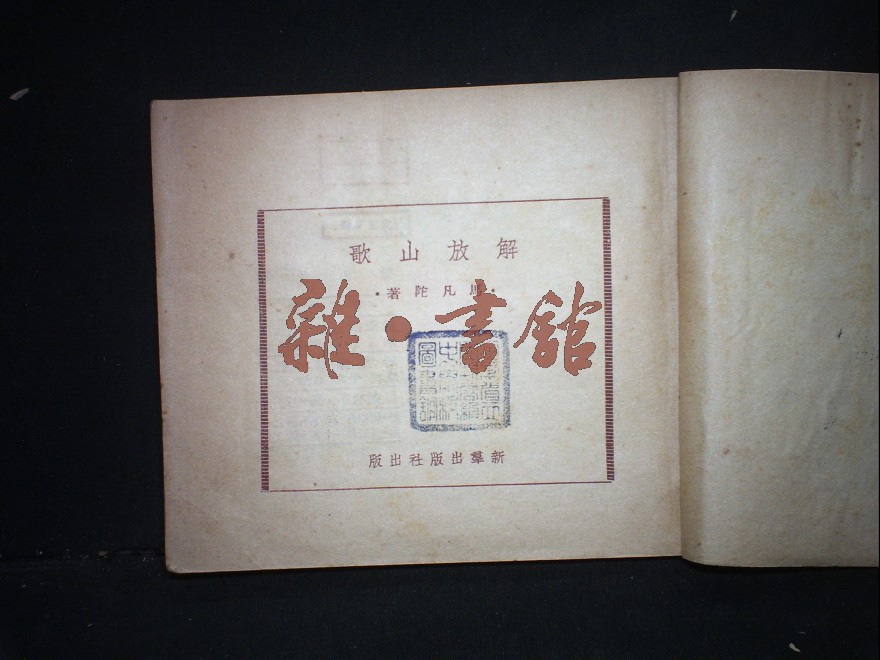 解放山歌
·馬凡陀著·
雜·書館
新羣出版社出版